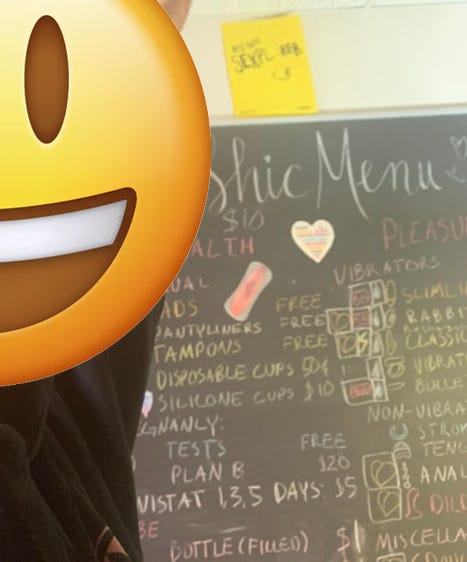 SEXPL
Shic Menu
$10
ALTH
PLEASU
UAL
VIBRATORS
ADS FREE
SLIMLI
PANTYLINERS FREE
RABBI
TAMPONS FREE
CLASSIC
DISPOSABLE CUPS 50¢
VIBRAT
SILICONE CUPS $10
BULLE
GNANCY:
NON-VIBRA
STROK
TESTS FREE
TENG
PLAN B $20
ANAL
NISTAT 1,3,5 DAYS: $5
DIL
BE
BOTTLE (FILLED) $1
MISCELLA